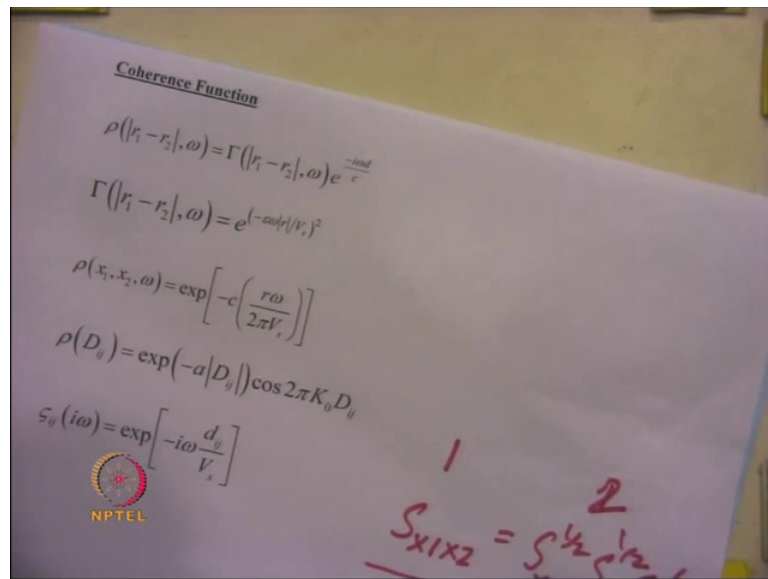 Coherence Function
ρ(|r₁ − r₂|, ω) = Γ(|r₁ − r₂|, ω) e^{−iωd/c}
Γ(|r₁ − r₂|, ω) = e^{(−αω|r|/Vₛ)²}
ρ(x₁, x₂, ω) = exp[−c(rω/2πVₛ)]
ρ(D_{ij}) = exp(−a|D_{ij}|) cos 2πK₀D_{ij}
ς_{ij}(iω) = exp[−iω d_{ij}/Vₛ]
NPTEL
1 2
S_{x1x2} = S^{1/2} S^{1/2}